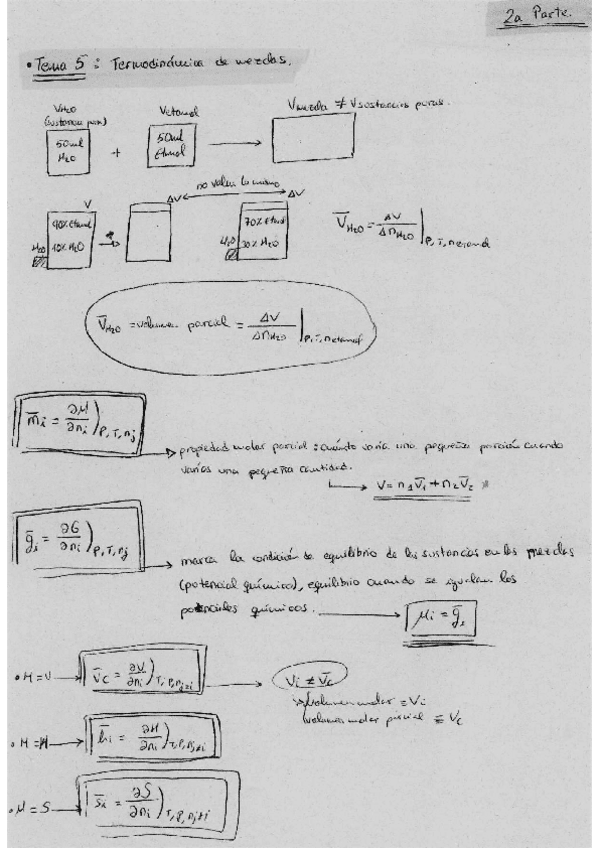 2a Parte.
• Tema 5: Termodinámica de mezclas.
VH2O
(sustancia pura)
Vetanol
Vmezcla ≠ Vsustancias puras.
50ml
H2O
+
50ml
Etanol
no valen lo mismo
V
ΔV
ΔV
90% Etanol
10% H2O
H2O
70% Etanol
30% H2O
H2O
V̄H2O = ΔV/ΔnH2O |P,T,netanol
V̄H2O = volumen parcial = ΔV/ΔnH2O |P,T,netanol
m̄i = ∂M/∂ni )P,T,nj
propiedad molar parcial: cuánto varía una pequeña porción cuando
varías una pequeña cantidad.
V = n1V̄1 + n2V̄2
ḡi = ∂G/∂ni )P,T,nj
marca la condición de equilibrio de las sustancias en las mezclas
(potencial químico), equilibrio cuando se igualan los
potenciales químicos.
μi = ḡi
• M = V → V̄i = ∂V/∂ni )T,P,nj≠i
Vi ≠ V̄i
volumen molar = Vi
volumen molar parcial = V̄i
• M = H → h̄i = ∂H/∂ni )T,P,nj≠i
• M = S → s̄i = ∂S/∂ni )T,P,nj≠i